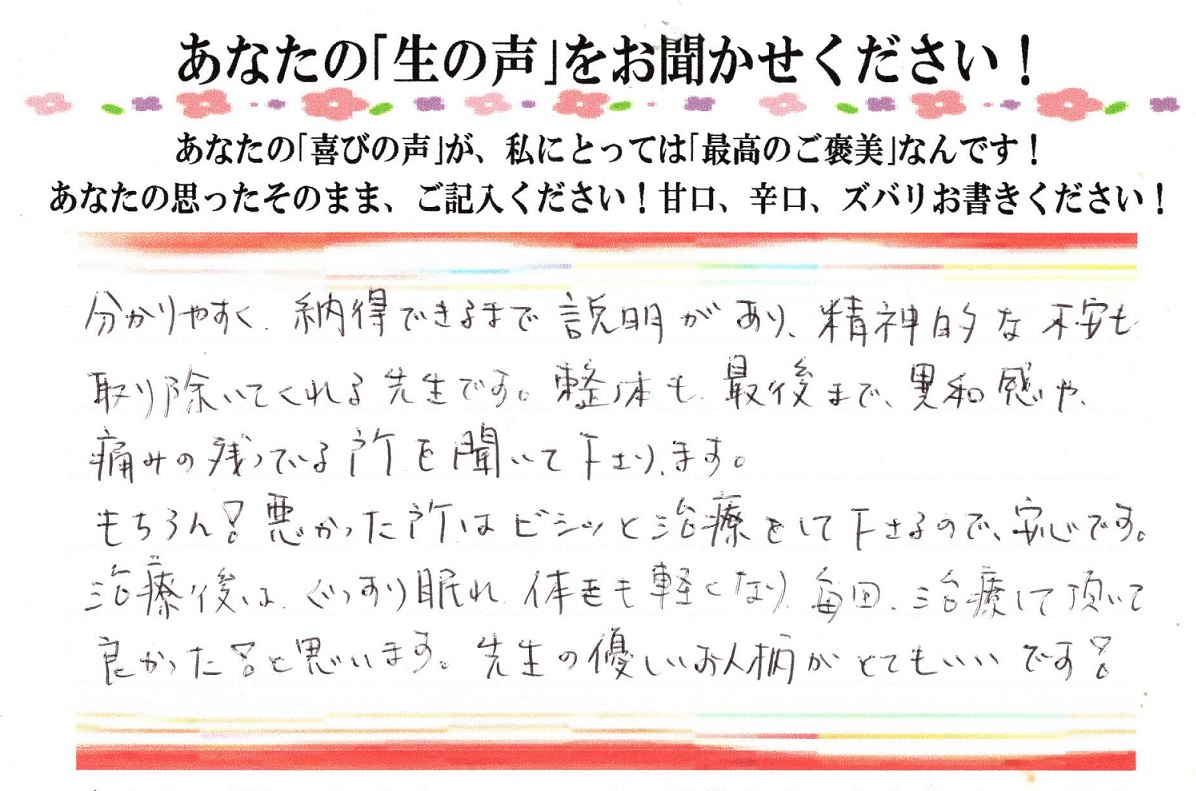 あなたの「生の声」をお聞かせください!
あなたの「喜びの声」が、私にとっては「最高のご褒美」なんです!
あなたの思ったそのまま、ご記入ください!甘口、辛口、ズバリお書きください!
分かりやすく、納得できるまで説明があり、精神的な不安も
取り除いてくれる先生です。整体も、最後まで、異和感や、
痛みの残っている所を聞いて下さります。
もちろん!悪かった所はビシッと治療をして下さるので、安心です。
治療後は、ぐっすり眠れ、体も軽くなり、毎回、治療して頂いて
良かった!と思います。先生の優しいお人柄がとてもいいです!